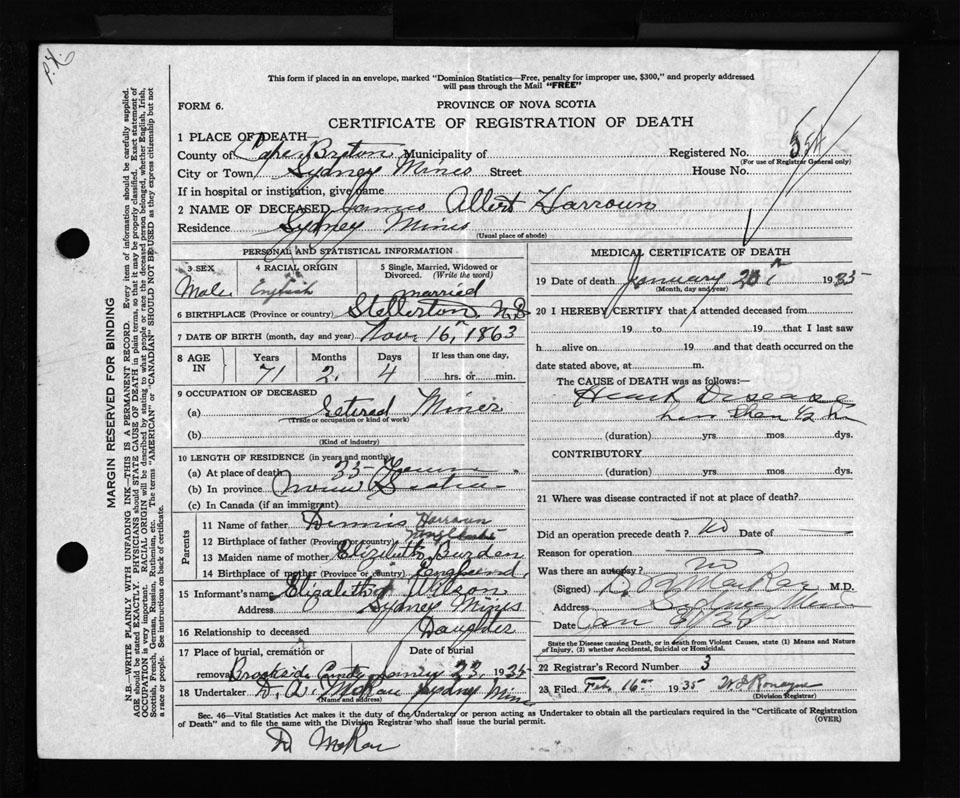 P.X.
This form if placed in an envelope, marked "Dominion Statistics—Free, penalty for improper use, $300," and properly addressed
will pass through the Mail "FREE"
FORM 6.
PROVINCE OF NOVA SCOTIA
CERTIFICATE OF REGISTRATION OF DEATH
1 PLACE OF DEATH—
County of Cape Breton Municipality of Registered No. 554
(For use of Registrar General only)
City or Town Sydney Mines Street House No.
If in hospital or institution, give name
2 NAME OF DECEASED James Albert Harroun
Residence Sydney Mines
(Usual place of abode)
PERSONAL AND STATISTICAL INFORMATION
3 SEX
Male
4 RACIAL ORIGIN
English
5 Single, Married, Widowed or Divorced. (Write the word)
married
6 BIRTHPLACE (Province or country) Stellerton, N.S.
7 DATE OF BIRTH (month, day and year) Nov. 16, 1863
8 AGE IN
Years Months Days If less than one day,
71 2 4 hrs. or min.
9 OCCUPATION OF DECEASED
(a) Retired Miner
(Trade or occupation or kind of work)
(b)
(Kind of industry)
10 LENGTH OF RESIDENCE (in years and months)
(a) At place of death 35 Years
(b) In province Nova Scotia
(c) In Canada (if an immigrant)
Parents
11 Name of father Dennis Harroun
12 Birthplace of father (Province or country)
13 Maiden name of mother Elizibeth Burden
14 Birthplace of mother (Province or country) England
15 Informant's name Elizabeth Wilson
Address Sydney Mines
16 Relationship to deceased Daughter
17 Place of burial, cremation or removal Date of burial
Brookside 23, 1935
18 Undertaker D. A. McRae Sydney Mines
(Name and address)
MEDICAL CERTIFICATE OF DEATH
19 Date of death January 20 1935
(Month, day and year)
20 I HEREBY CERTIFY that I attended deceased from
19 to 19 that I last saw
h alive on 19 and that death occurred on the
date stated above, at m.
The CAUSE of DEATH was as follows:—
Heart Disease
less than
(duration) yrs. mos dys.
CONTRIBUTORY
(duration) yrs. mos dys.
21 Where was disease contracted if not at place of death?
Did an operation precede death? no Date of
Reason for operation
Was there an autopsy? no
(Signed) MacRae M.D.
Address Sydney Mines
Date Jan
State the Disease causing Death, or in death from Violent Causes, state (1) Means and Nature
of Injury, (2) whether Accidental, Suicidal or Homicidal.
22 Registrar's Record Number 3
23 Filed Feb 16th 1935
(Division Registrar)
Sec. 46—Vital Statistics Act makes it the duty of the Undertaker or person acting as Undertaker to obtain all the particulars required in the "Certificate of Registration
of Death" and to file the same with the Division Registrar who shall issue the burial permit.
(OVER)
D McRae
MARGIN RESERVED FOR BINDING
N.B.—WRITE PLAINLY WITH UNFADING INK—THIS IS A PERMANENT RECORD. Every item of information should be carefully supplied.
AGE should be stated EXACTLY. PHYSICIANS should STATE CAUSE OF DEATH in plain terms, so that it may be properly classified. Exact statement of
OCCUPATION is very important. RACIAL ORIGIN will be described by stating to what people or race the deceased person belonged, whether English, Irish,
Scottish, French, German, Russian, Ruthenian, etc. The terms "AMERICAN" or "CANADIAN" SHOULD NOT BE USED as they express citizenship but not
a race or people. See instructions on back of certificate.